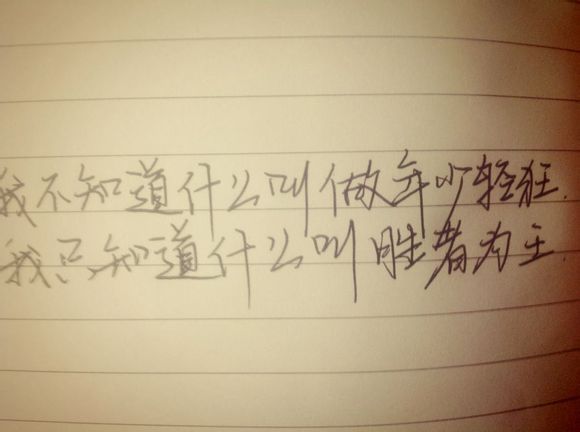 我不知道什么叫做年少轻狂.
我只知道什么叫胜者为王.